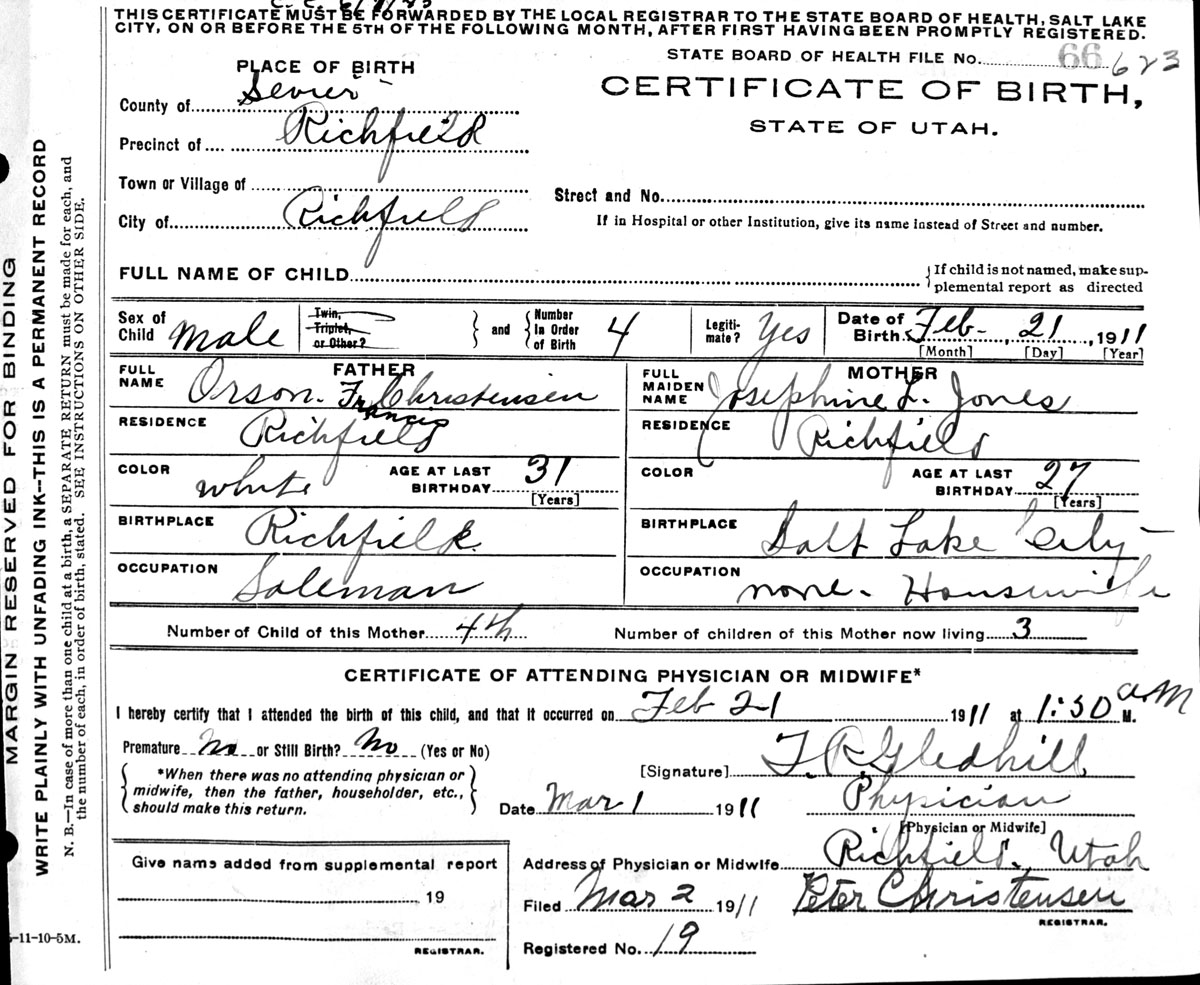 THIS CERTIFICATE MUST BE FORWARDED BY THE LOCAL REGISTRAR TO THE STATE BOARD OF HEALTH, SALT LAKE
CITY, ON OR BEFORE THE 5TH OF THE FOLLOWING MONTH, AFTER FIRST HAVING BEEN PROMPTLY REGISTERED.
STATE BOARD OF HEALTH FILE No. 66 623
PLACE OF BIRTH
CERTIFICATE OF BIRTH,
STATE OF UTAH.
County of Sevier
Precinct of Richfield
Town or Village of
Street and No.
City of Richfield
If in Hospital or other Institution, give its name instead of Street and number.
FULL NAME OF CHILD
{If child is not named, make sup-
plemental report as directed
Sex of Child Male
Twin, Triplet, or Other?
and
Number In Order of Birth 4
Legiti-mate? Yes
Date of Birth Feb- 21, 1911
[Month] [Day] [Year]
FATHER
FULL NAME Orson Francis Christensen
MOTHER
FULL MAIDEN NAME Josephine L. Jones
RESIDENCE Richfield
RESIDENCE Richfield
COLOR white AGE AT LAST BIRTHDAY 31 [Years]
COLOR AGE AT LAST BIRTHDAY 27 [Years]
BIRTHPLACE Richfield
BIRTHPLACE Salt Lake City
OCCUPATION Saleman
OCCUPATION none. Housewife
Number of Child of this Mother 4th
Number of children of this Mother now living 3
CERTIFICATE OF ATTENDING PHYSICIAN OR MIDWIFE*
I hereby certify that I attended the birth of this child, and that it occurred on Feb 21 1911 at 1:30 a.M M.
Premature No or Still Birth? No (Yes or No)
*When there was no attending physician or
midwife, then the father, householder, etc.,
should make this return.
[Signature] T. R. Gledhill
Date Mar 1 1911 Physician
[Physician or Midwife]
Give name added from supplemental report
19
REGISTRAR.
Address of Physician or Midwife Richfield. Utah
Filed Mar 2 1911 Peter Christensen
REGISTRAR.
Registered No. 19
-11-10-5M.
MARGIN RESERVED FOR BINDING
WRITE PLAINLY WITH UNFADING INK--THIS IS A PERMANENT RECORD
N. B.—In case of more than one child at a birth, a SEPARATE RETURN must be made for each, and
the number of each, in order of birth, stated. SEE INSTRUCTIONS ON OTHER SIDE.